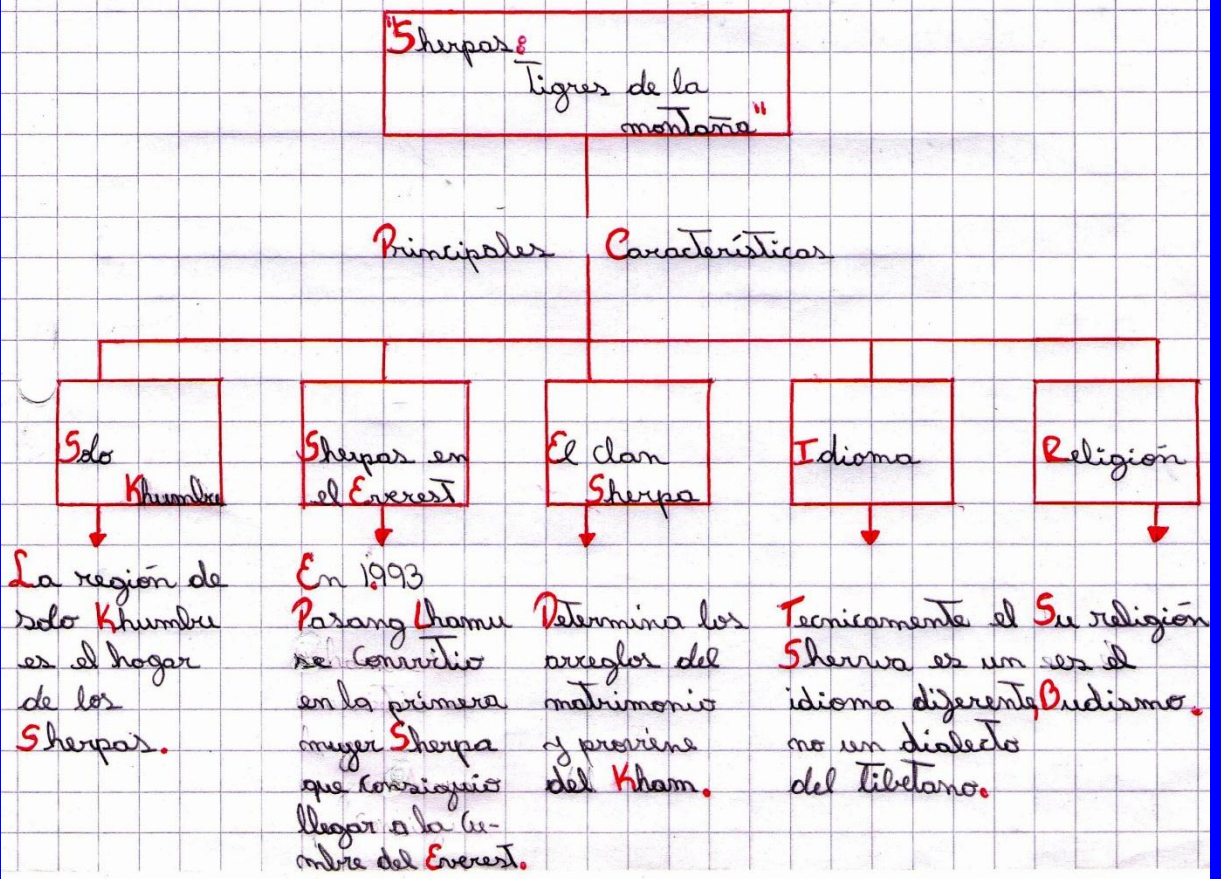 "Sherpas:
Tigres de la
montaña"
Principales Características
Solo
Khumbu
Sherpas en
el Everest
El clan
Sherpa
Idioma
Religión
La región de
solo Khumbu
es el hogar
de los
Sherpas.
En 1993
Pasang Lhamu
se Convirtio
en la primera
muger Sherpa
que consiguio
llegar a la Cu-
mbre del Everest.
Determina los
arreglos del
matrimonio
y provine
del Kham.
Tecnicamente el
Sherwa es un
idioma diferente,
no un dialecto
del Tibetano.
Su religión
es el
Budismo.